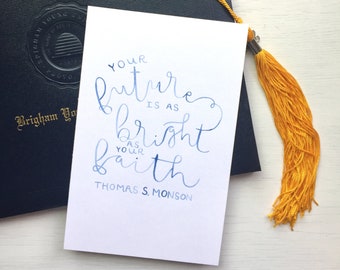 BRIGHAM YOUNG
Brigham Yo
YOUR
future
IS AS
bright
AS
YOUR
faith
THOMAS S. MONSON